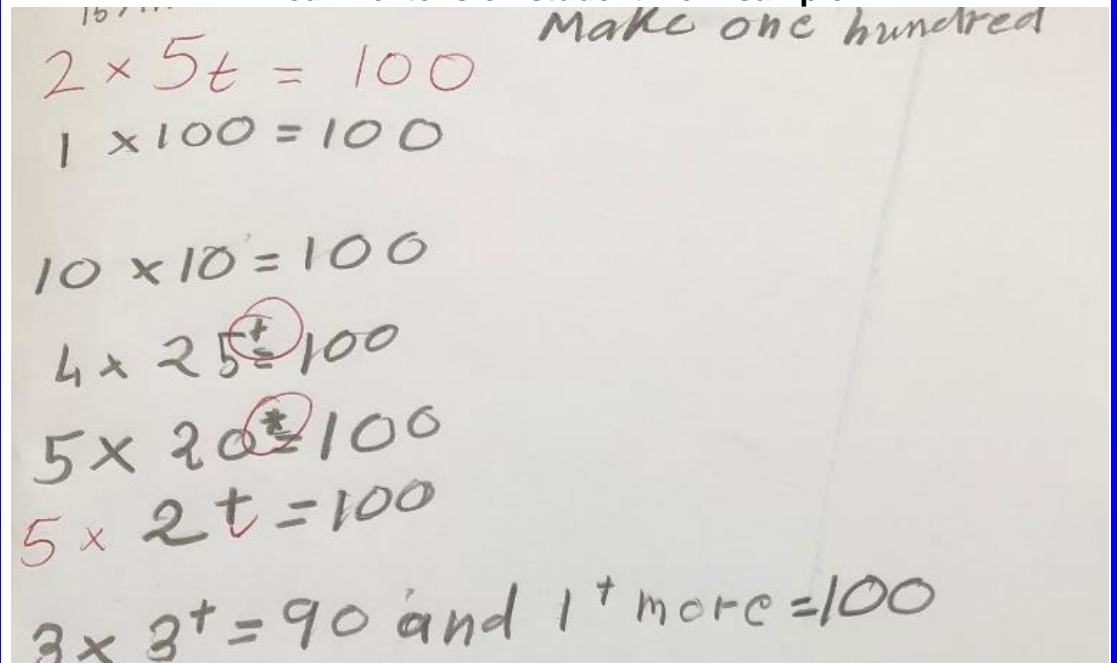 Make one hundred
2 × 5t = 100
1 × 100 = 100
10 × 10 = 100
4 × 25t = 100
5 × 20t = 100
5 × 2t = 100
3 × 3t = 90 and 1t more = 100